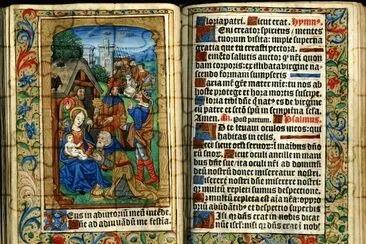 Deus in adiutoriũ meũ intẽde.
Dñe ad adiuvãdũ me festia.
Gloria patri. Sicut erat. Hymnꝰ.
Veni creator spiritus / mentes
tuorum visita: imple superna
gratia que tu creasti pectora.
Memẽto salutis auctor ꝙ nr̃i quon
dam corporis: ex illibata virgine na
scendo formam sumpseris
Maria mr̃ gr̃e mater mie: tu nos ab
hoste protege et hora mortis suscipe.
Gloria tibi dñe qui natꝰ es de virgine
cũ patre et sctõ spũ in sempiterna sec̃la.
Amen. post partum. Psalmus.
Ad te levavi oculos meos: qui
habitas in celis.
Ecce sicut oculi servorũ: ĩ manibꝰ dño
rũ suoꝝ. Sicut oculi ancille in mani
bus dñe sue: ita oculi nr̃i ad dominũ
deũ nostrũ donec misereatur nostri.
Miserere nostri dñe miserere nostri: quia
multũ repleti sumus despectione.
Quia multũ repleta est aĩa nr̃a: oppro
briũ abũdãtibꝰ et despectio superbis
Nisi qꝛ dñs erat in nobis dicat
nũc isrl̃: nisi qꝛ dñs erat in nobis